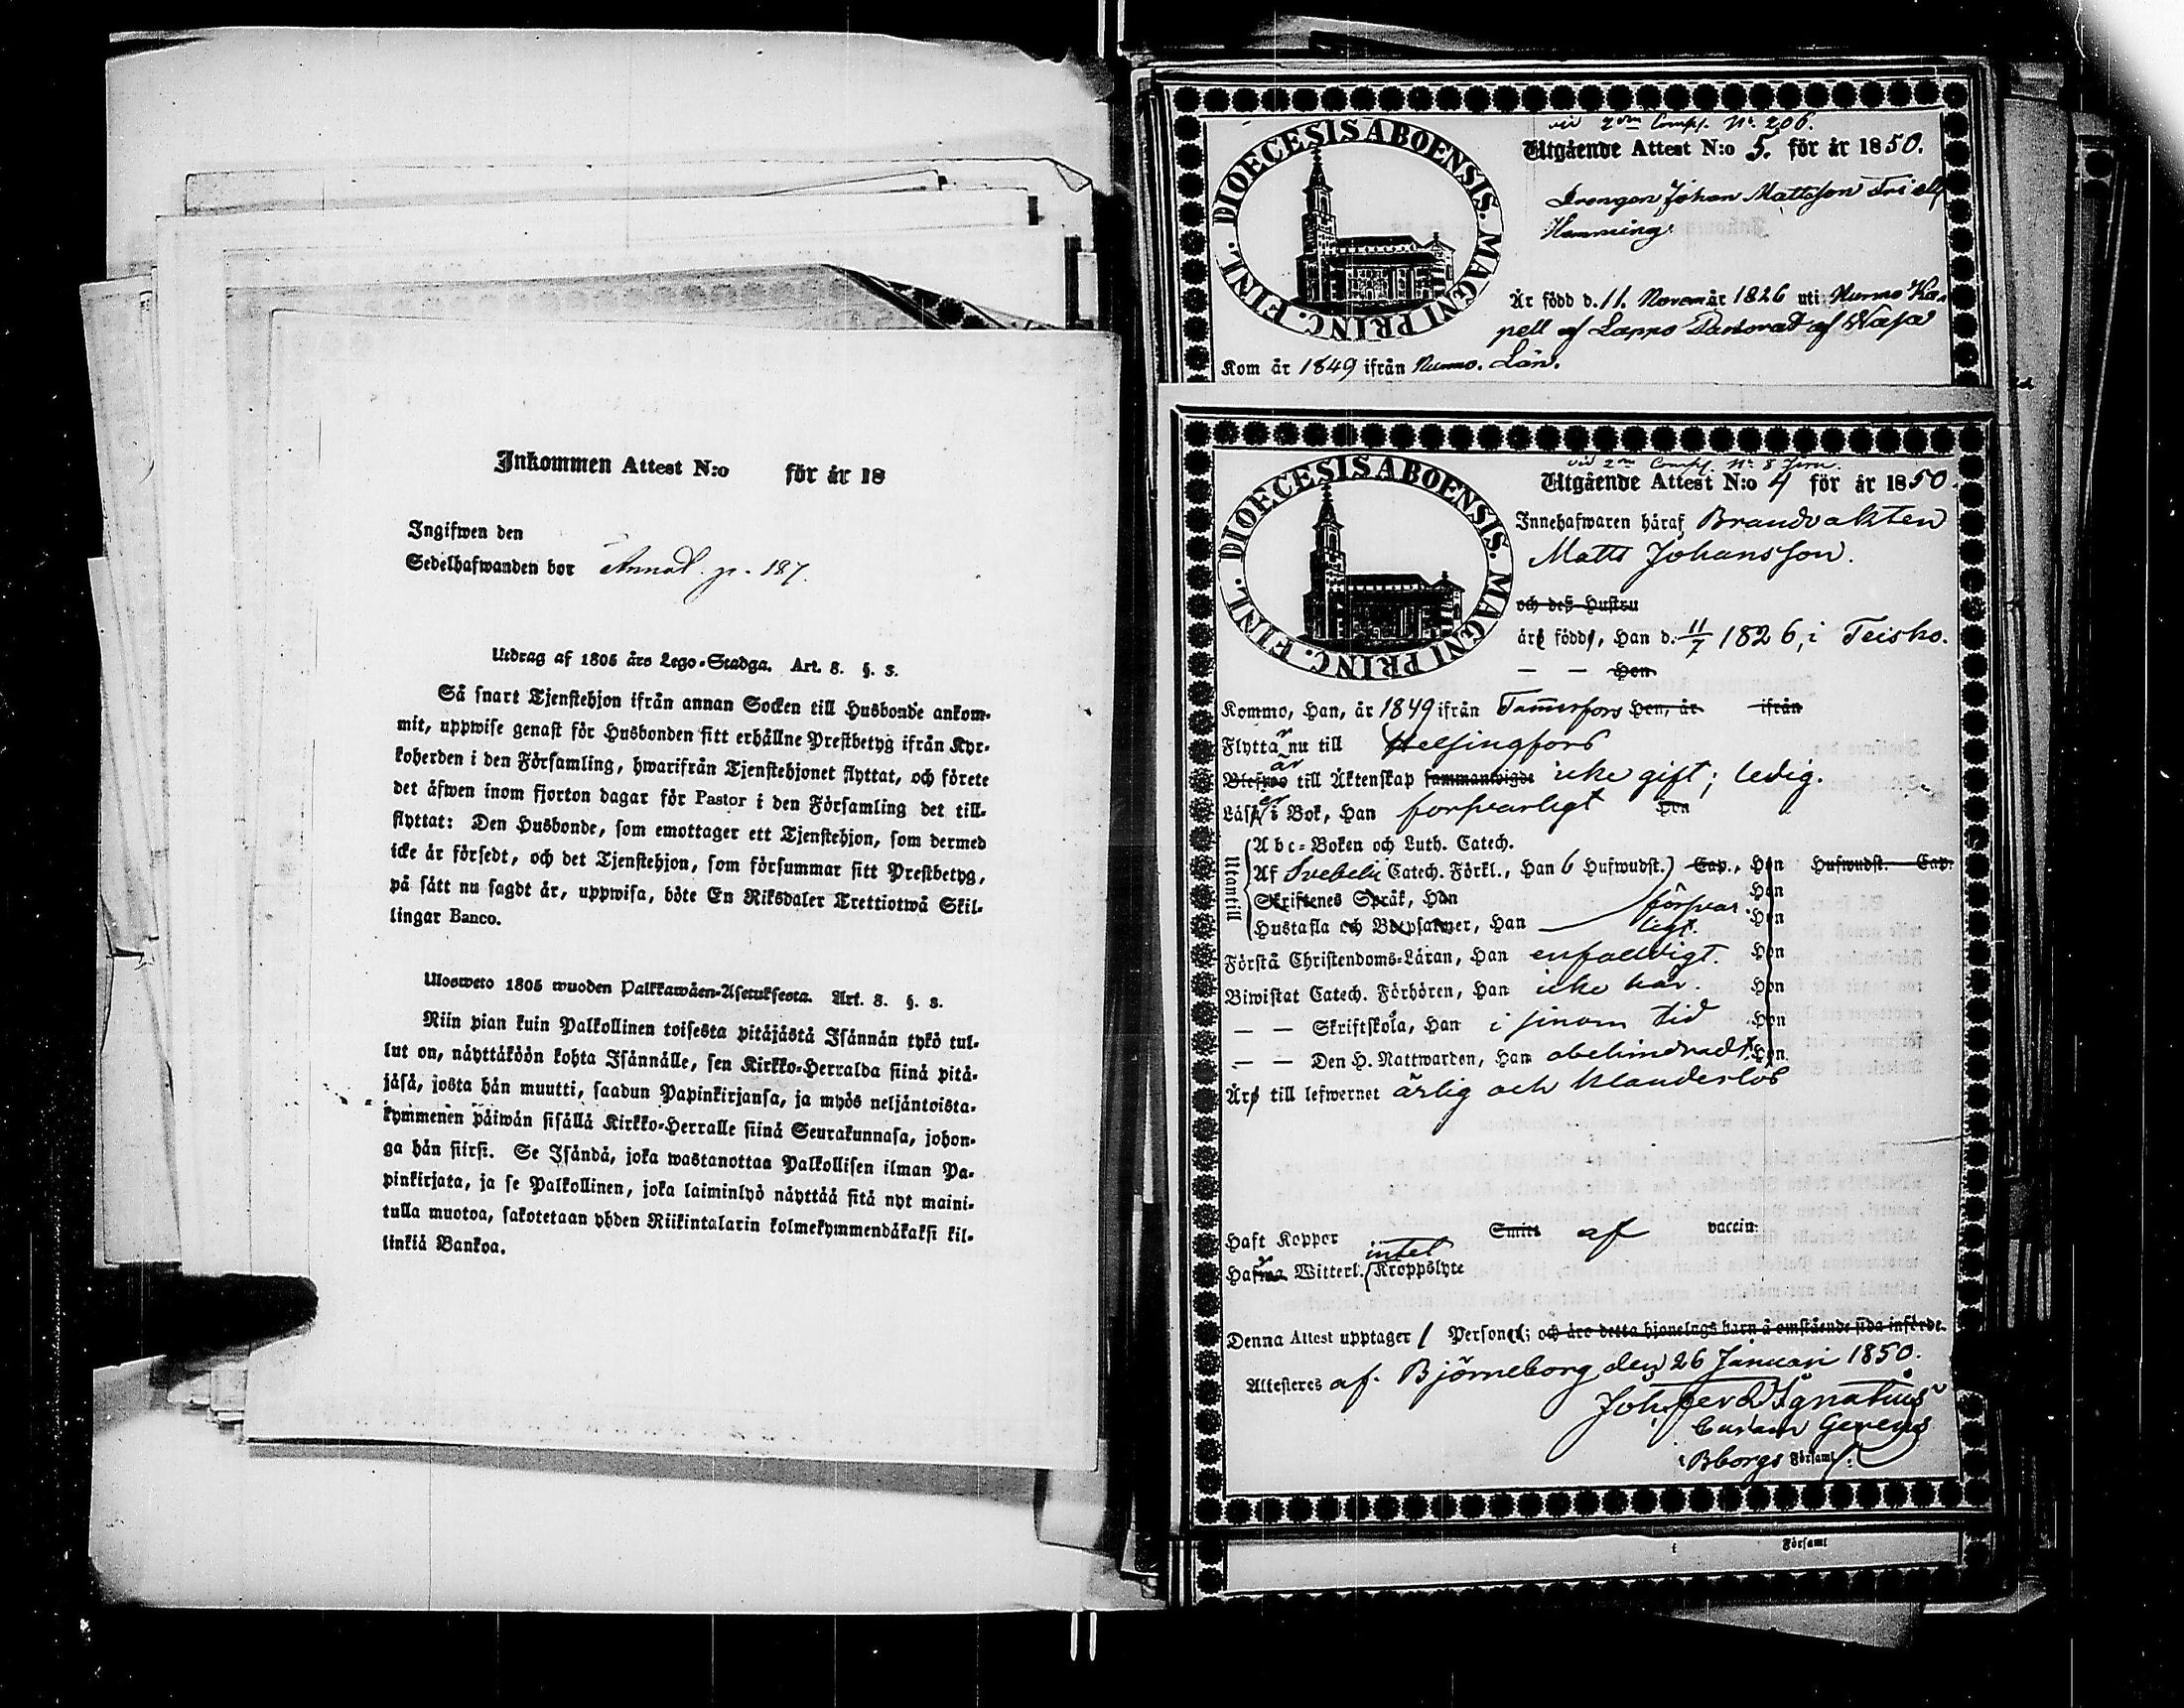 Inkommen Attest N:o för år 18
Ingifwen den
Sedelhafwanden bor Annal. p. 187.
Utdrag af 1805 års Lego-Stadga. Art. 8. §. 3.
Så snart Tjenstehjon ifrån annan Socken till Husbonde ankom-
mit, uppwise genast för Husbonden sitt erhållne Prestbetyg ifrån Kyr-
koherden i den Församling, hwarifrån Tjenstehjonet flyttat, och förete
det äfwen inom fjorton dagar för Pastor i den Församling det till-
flyttat: Den Husbonde, som emottager ett Tjenstehjon, som dermed
icke är försedt, och det Tjenstehjon, som försummar sitt Prestbetyg,
på sätt nu sagdt är, uppwisa, böte En Riksdaler Trettiotwå Skil-
lingar Banco.
Ulosweto 1805 wuoden Palkkawäen-Asetuksesta. Art. 8. §. 3.
Niin pian kuin Palkollinen toisesta pitäjästä Isännän tykö tul-
lut on, näyttäköön kohta Isännälle, sen Kirkko-Herralda siinä pitä-
jäsä, josta hän muutti, saadun Papinkirjansa, ja myös neljäntoista-
kymmenen päiwän sisällä Kirkko-Herralle siinä Seurakunnasa, johon-
ga hän siirsi. Se Isändä, joka wastanottaa Palkollisen ilman Pa-
pinkirjata, ja se Palkollinen, joka laiminlyö näyttää sitä nyt maini-
tulla muotoa, sakotetaan yhden Riikintalarin kolmekymmendäkaksi kil-
linkiä Bankoa.
vid 2dra Compl. No. 206.
DIOECESIS ABOENSIS. MAGNI PRINC. FINL.
Utgående Attest N:o 5. för år 1850.
Drengen Johan Mattsson
Hemming.
Är född d. 11. 1826 uti Nurmo Ka-
pell af Lappo Pastorat af Wasa
Kom år 1849 ifrån Nurmo. Län.
vid 2n Compl. No. 8
DIOECESIS ABOENSIS. MAGNI PRINC. FINL.
Utgående Attest N:o 4 för år 1850.
Innehafwaren häraf Brandvakten
Matts Johansson.
och deß Hustru
äro födde, Han d. 11/7 1826, i Teisko.
— — Hon
Kommo, Han, år 1849 ifrån Tammerfors Hon, år ifrån
Flyttar nu till Helsingfors
Blefwo är till Äktenskap sammanwigde icke gift; ledig.
Läser i Bok, Han forsvarligt Hon
Utantill
Abc-Boken och Luth. Catech.
Af Svebelii Catech. Förkl., Han 6 Hufwudst.) Cap., Hon Hufwudst. Cap.
Skriftenes Språk, Han försvar- Hon
Hustafla och Botpsalmer, Han ligt. Hon
Förstå Christendoms-Läran, Han enfaldigt. Hon
Biwistat Catech. Förhören, Han icke här. Hon
— — Skriftskola, Han i sinom tid Hon
— — Den H. Nattwarden, Han obehindradt. Hon
Äro till lefwernet ärlig och klanderlös
Haft Koppor Smitt af vaccin:
Hafwa Witterl. intet Kroppslyte
Denna Attest upptager 1 Person; och äro detta hjonelags barn å omstående sida införde.
Attesteres af. Björneborg den 26 Januari 1850.
Joh. Ferd Ignatius
Curam Gerens
i Bborgs Församl.
i Församl